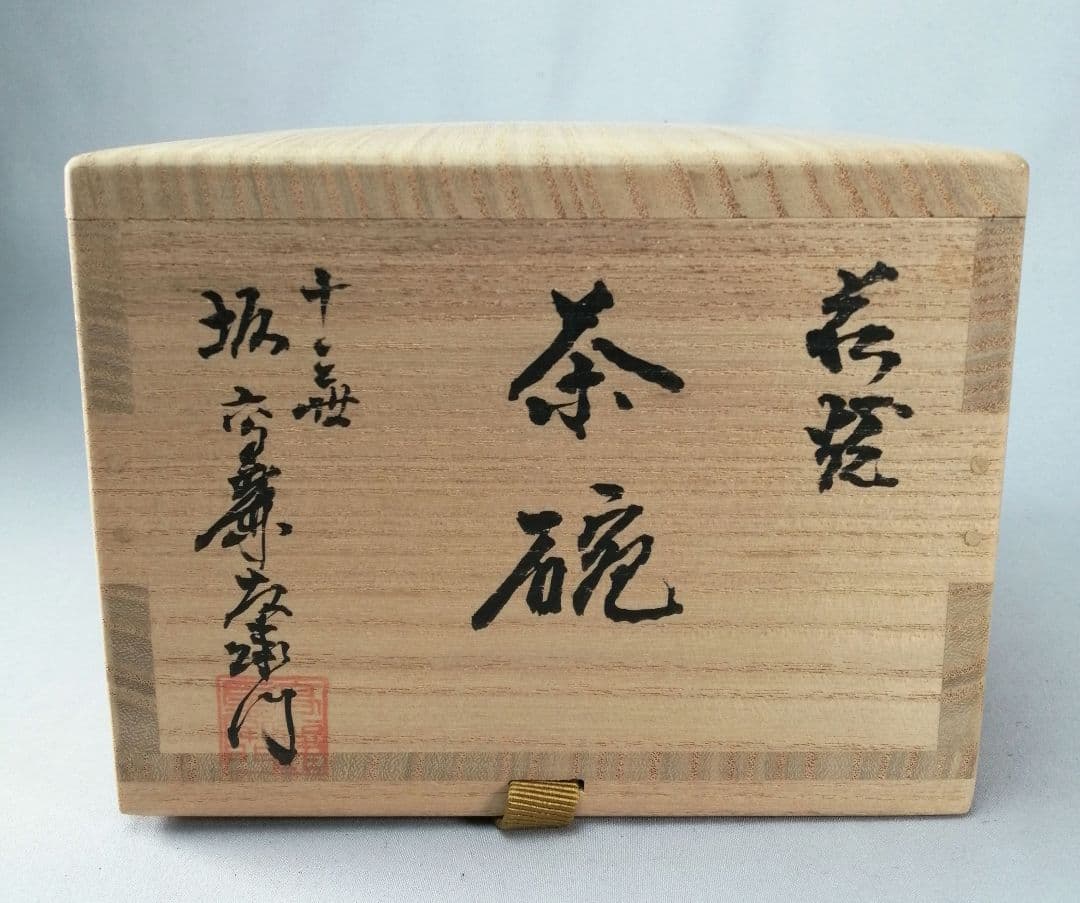 萩焼
茶碗
十二世
坂高麗左衛門